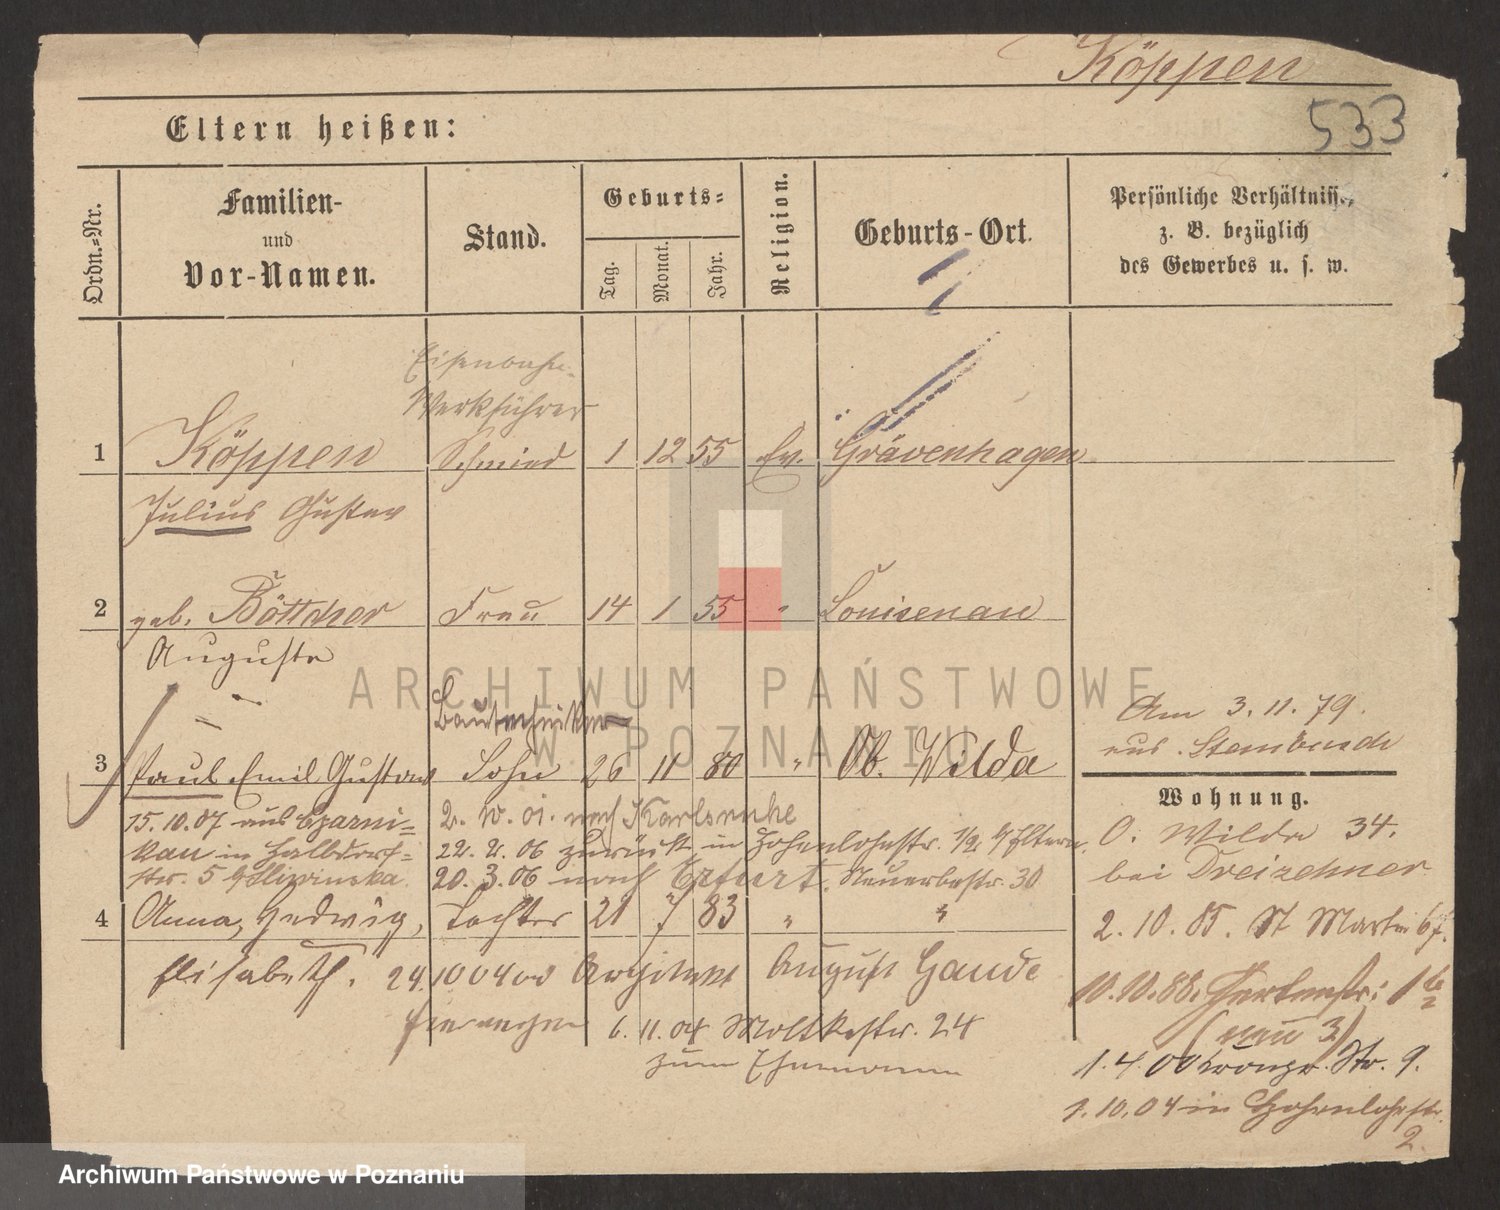 Köppen
533
Eltern heißen:
Ordn.=Nr.
Familien-
und
Vor-Namen.
Stand.
Geburts=
Tag.
Monat.
Jahr.
Religion.
Geburts-Ort.
Persönliche Verhältnisse,
z. B. bezüglich
des Gewerbes u. s. w.
Eisenbahn-
Werkführer
1 Köppen Schmied 1 12 55 Ev. Grävenhagen
Julius Gustav
2 geb. Böttcher Frau 14 1 55 " Louisenau
Auguste
Bautechniker
3 Paul Emil Gustav Sohn 26 11 80 " Ob. Wilda
15.10.07 aus Czarni=
kau in Halbdorf=
str. 5
2. 10. 01. nach Karlsruhe
22. 2. 06 zurück in Hohenlohestr. 1/2 Eltern.
20. 3. 06 nach Erfurt. 30
4 Anna, Hedwig, Tochter 21 7 83 " "
Elisabeth. 24. 10 04 Architekt August Gaude
6. 11. 04 Moltkestr. 24
zum Ehemann
Am 3. 11. 79.
aus
Wohnung.
O. Wilda 34.
bei Dreizehner
2. 10. 85. St Martin 67.
10. 10. 88. Gartenstr: 1
(neu 3)
1. 4. 00 Kronpr. Str. 9.
1. 10. 04 in Hohenlohestr.
2.
ARCHIWUM PAŃSTWOWE
W POZNANIU
Archiwum Państwowe w Poznaniu